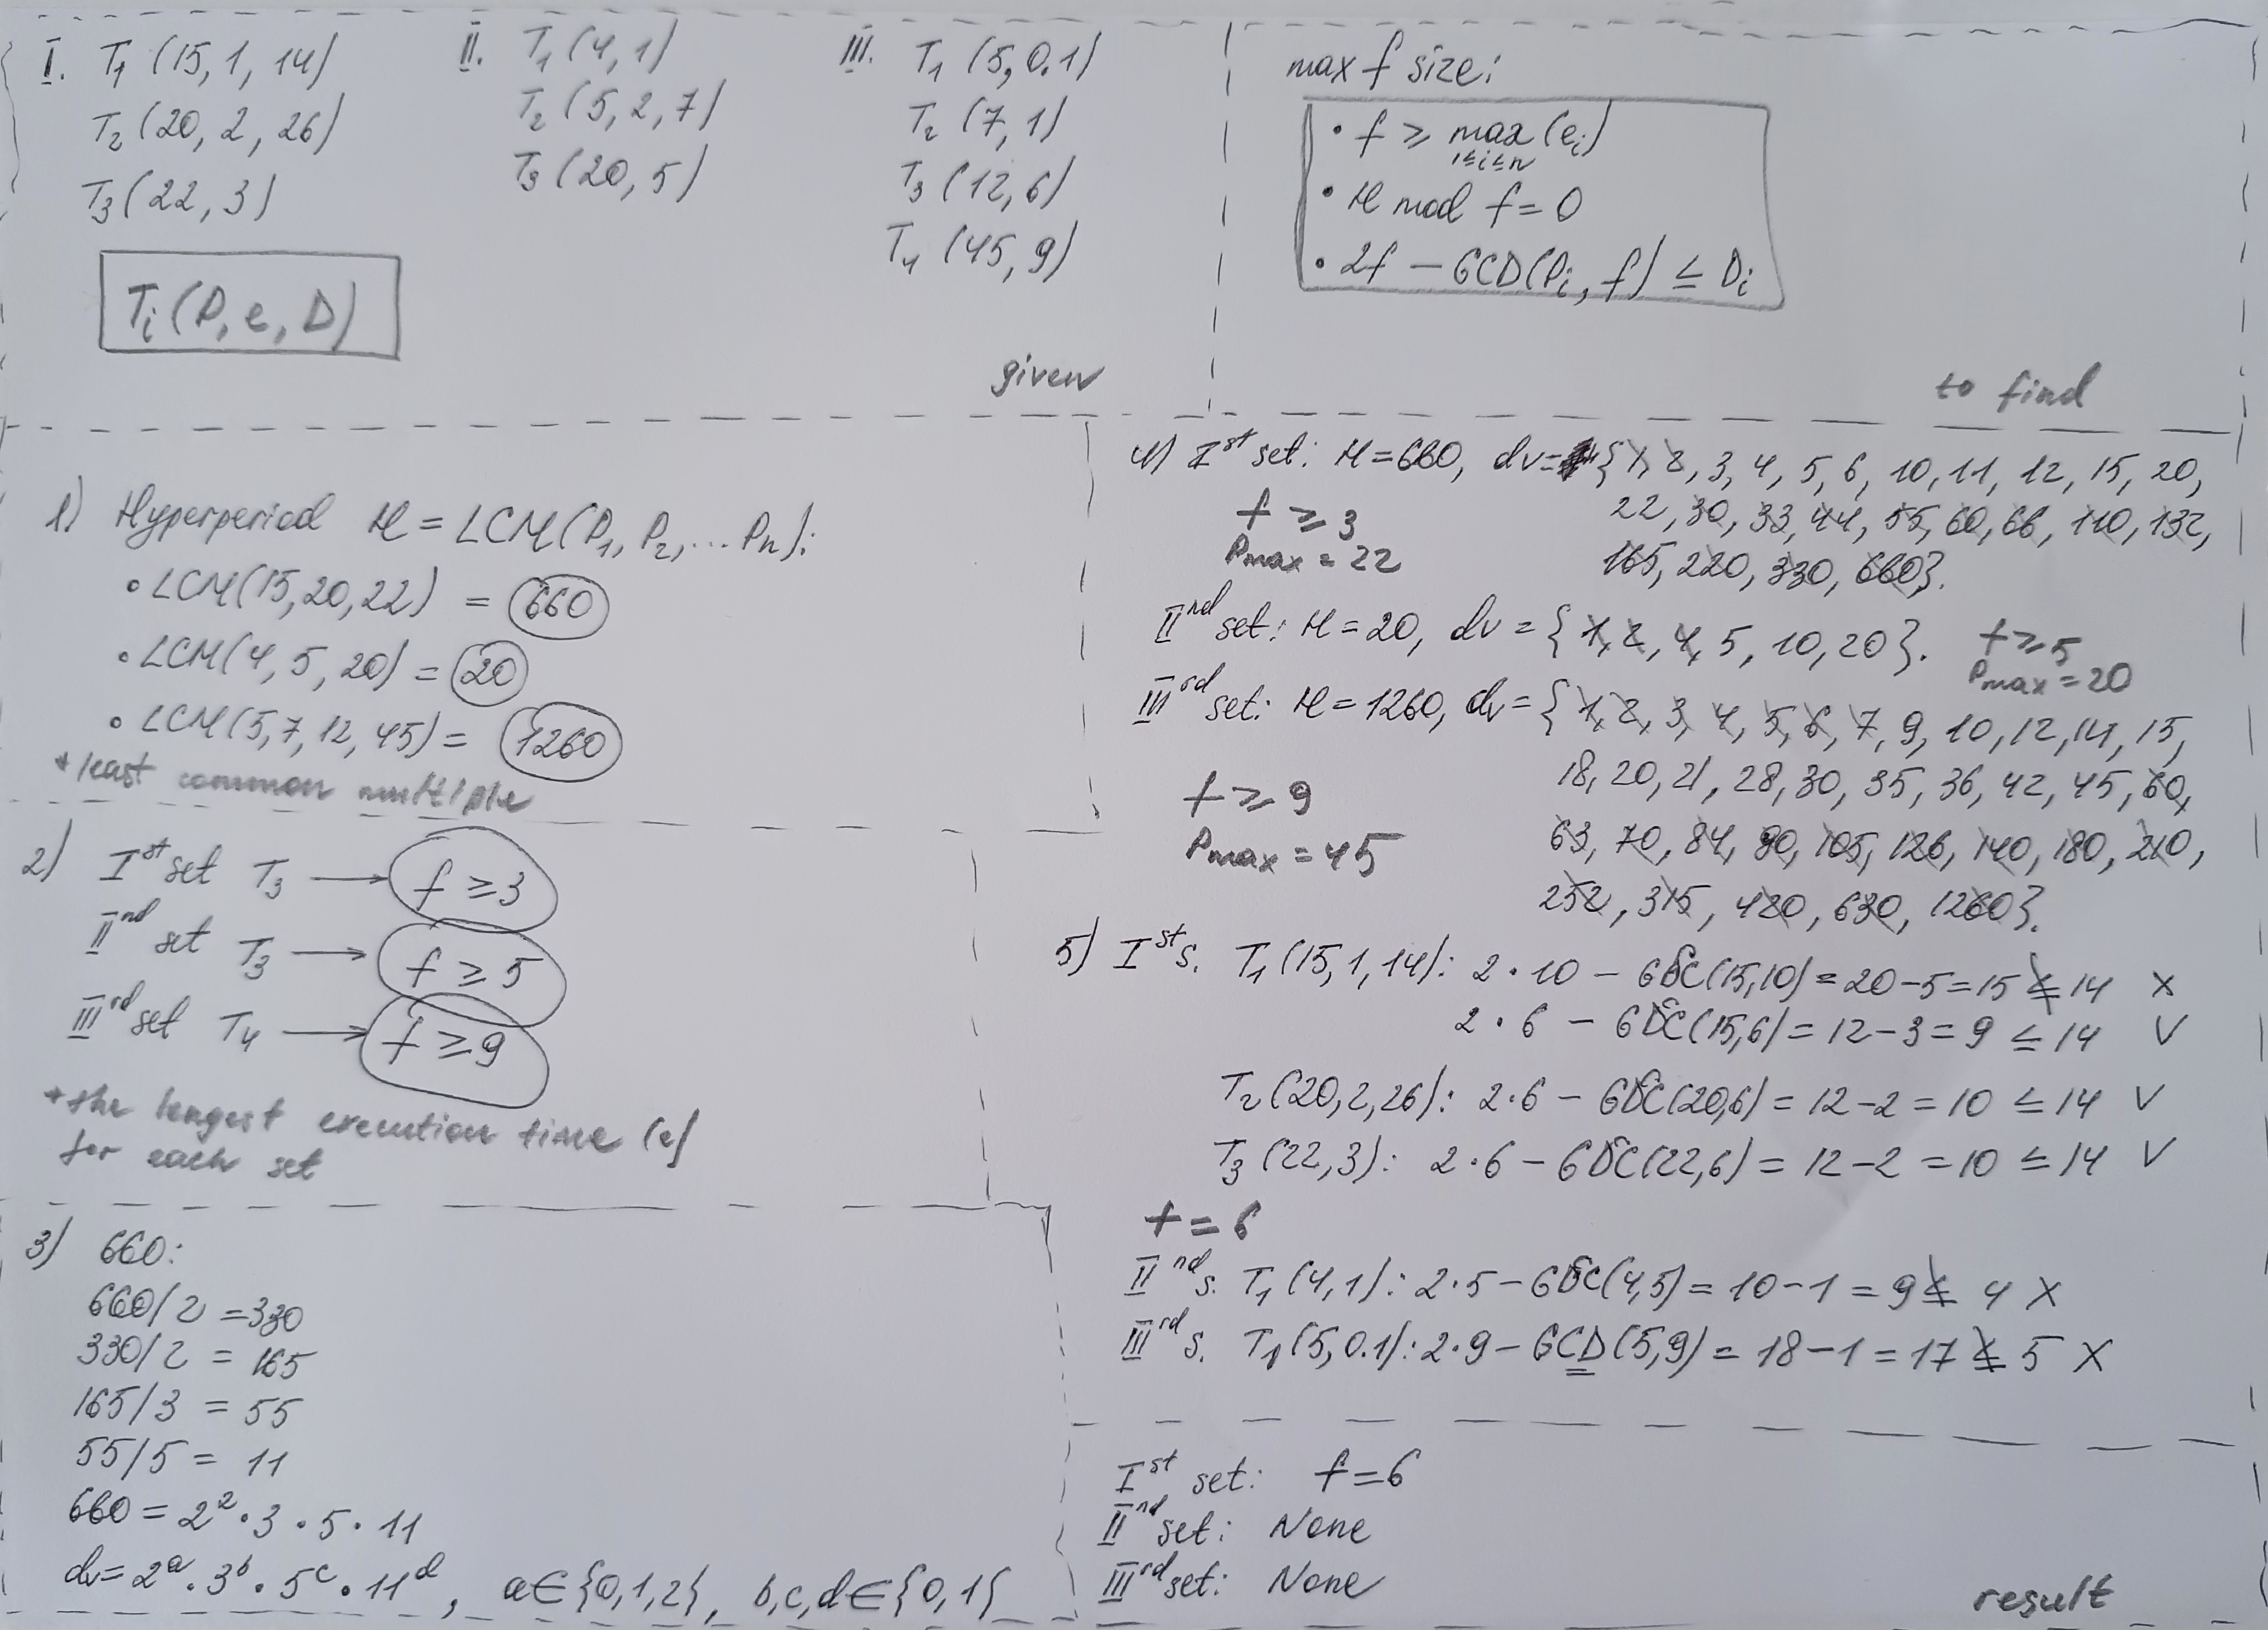 I. T₁ (15, 1, 14)
T₂ (20, 2, 26)
T₃ (22, 3)
Tᵢ (P, e, D)
II. T₁ (4, 1)
T₂ (5, 2, 7)
T₃ (20, 5)
III. T₁ (5, 0.1)
T₂ (7, 1)
T₃ (12, 6)
T₄ (45, 9)
given
max f size:
• f ≥ max (eᵢ)
1≤i≤n
• H mod f = 0
• 2f – GCD(Pᵢ, f) ≤ Dᵢ
to find
1) Hyperperiod H = LCM(P₁, P₂, ... Pn):
• LCM(15, 20, 22) = 660
• LCM(4, 5, 20) = 20
• LCM(5, 7, 12, 45) = 1260
* least common multiple
2) Iˢᵗ set T₃ → f ≥ 3
IIⁿᵈ set T₃ → f ≥ 5
IIIʳᵈ set T₄ → f ≥ 9
* the longest execution time (e)
for each set
3) 660:
660/2 = 330
330/2 = 165
165/3 = 55
55/5 = 11
660 = 2² · 3 · 5 · 11
dv = 2ᵃ · 3ᵇ · 5ᶜ · 11ᵈ, a ∈ {0, 1, 2}, b, c, d ∈ {0, 1}
4) Iˢᵗ set: H = 660, dv = {1, 2, 3, 4, 5, 6, 10, 11, 12, 15, 20,
22, 30, 33, 44, 55, 60, 66, 110, 132,
165, 220, 330, 660}.
f ≥ 3
Pmax = 22
IIⁿᵈ set: H = 20, dv = {1, 2, 4, 5, 10, 20}. f ≥ 5
Pmax = 20
IIIʳᵈ set: H = 1260, dv = {1, 2, 3, 4, 5, 6, 7, 9, 10, 12, 14, 15,
18, 20, 21, 28, 30, 35, 36, 42, 45, 60,
63, 70, 84, 90, 105, 126, 140, 180, 210,
252, 315, 420, 630, 1260}.
f ≥ 9
Pmax = 45
5) Iˢᵗ s. T₁ (15, 1, 14): 2 · 10 – GDC(15, 10) = 20 – 5 = 15 ≰ 14 X
2 · 6 – GDC(15, 6) = 12 – 3 = 9 ≤ 14 V
T₂ (20, 2, 26): 2 · 6 – GDC(20, 6) = 12 – 2 = 10 ≤ 14 V
T₃ (22, 3): 2 · 6 – GDC(22, 6) = 12 – 2 = 10 ≤ 14 V
f = 6
IIⁿᵈ s. T₁ (4, 1): 2 · 5 – GDC(4, 5) = 10 – 1 = 9 ≰ 4 X
IIIʳᵈ s. T₁ (5, 0.1): 2 · 9 – GCD(5, 9) = 18 – 1 = 17 ≰ 5 X
Iˢᵗ set: f = 6
IIⁿᵈ set: None
IIIʳᵈ set: None
result